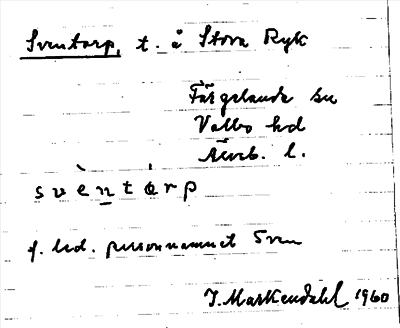 Sventorp, t. å Stora Ryk
Färgelanda sn
Valbo hd
Älvsb. l.
svèntórp
f. led. personnamnet Sven
J. Markendahl 1960